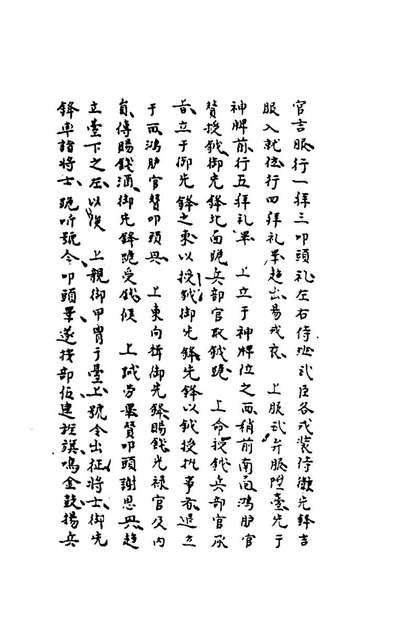 官吉服行一拜三叩頭礼左右侍班武臣各戎裝侍徹先鋒吉
服入就位行四拜礼畢趋出易戎衣　上服武弁服陞臺先于
神牌前行五拜礼畢　上立于神牌位之西稍前南向鴻胪官
賛授鉞御先鋒北面跪兵部官取鉞跪　上命授鉞兵部官承
旨立于御先鋒之東以授鉞御先鋒先鋒以鉞授执事者退立
于西鴻胪官賛叩頭興　上東向揖御先鋒賜餞光禄官及内
員傳賜餞酒御先鋒跪受餞候　上誡勞畢賛叩頭謝恩興趋
立臺下之左以俟　上親御甲胄于臺上號令出征將士御先
鋒率諸將士跪听號令叩頭畢遂按部伍建旌旗鳴金鼓揚兵